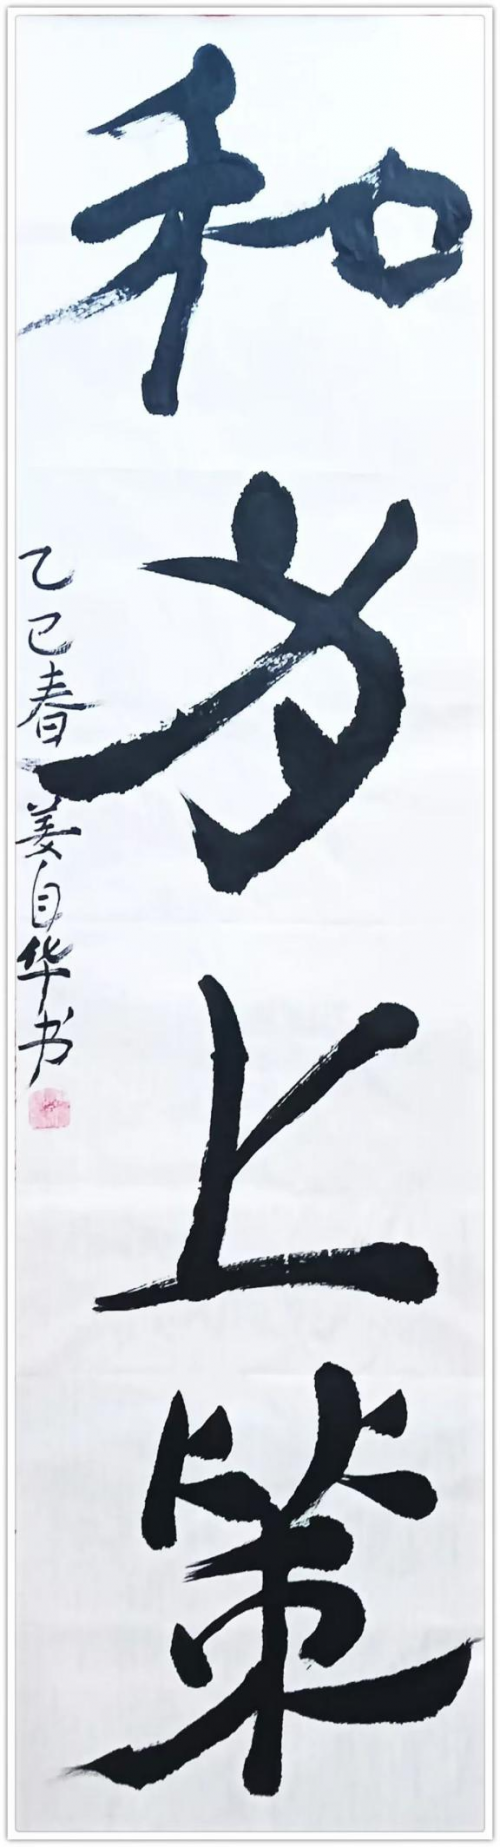 和为上策
乙巳春 姜自华书